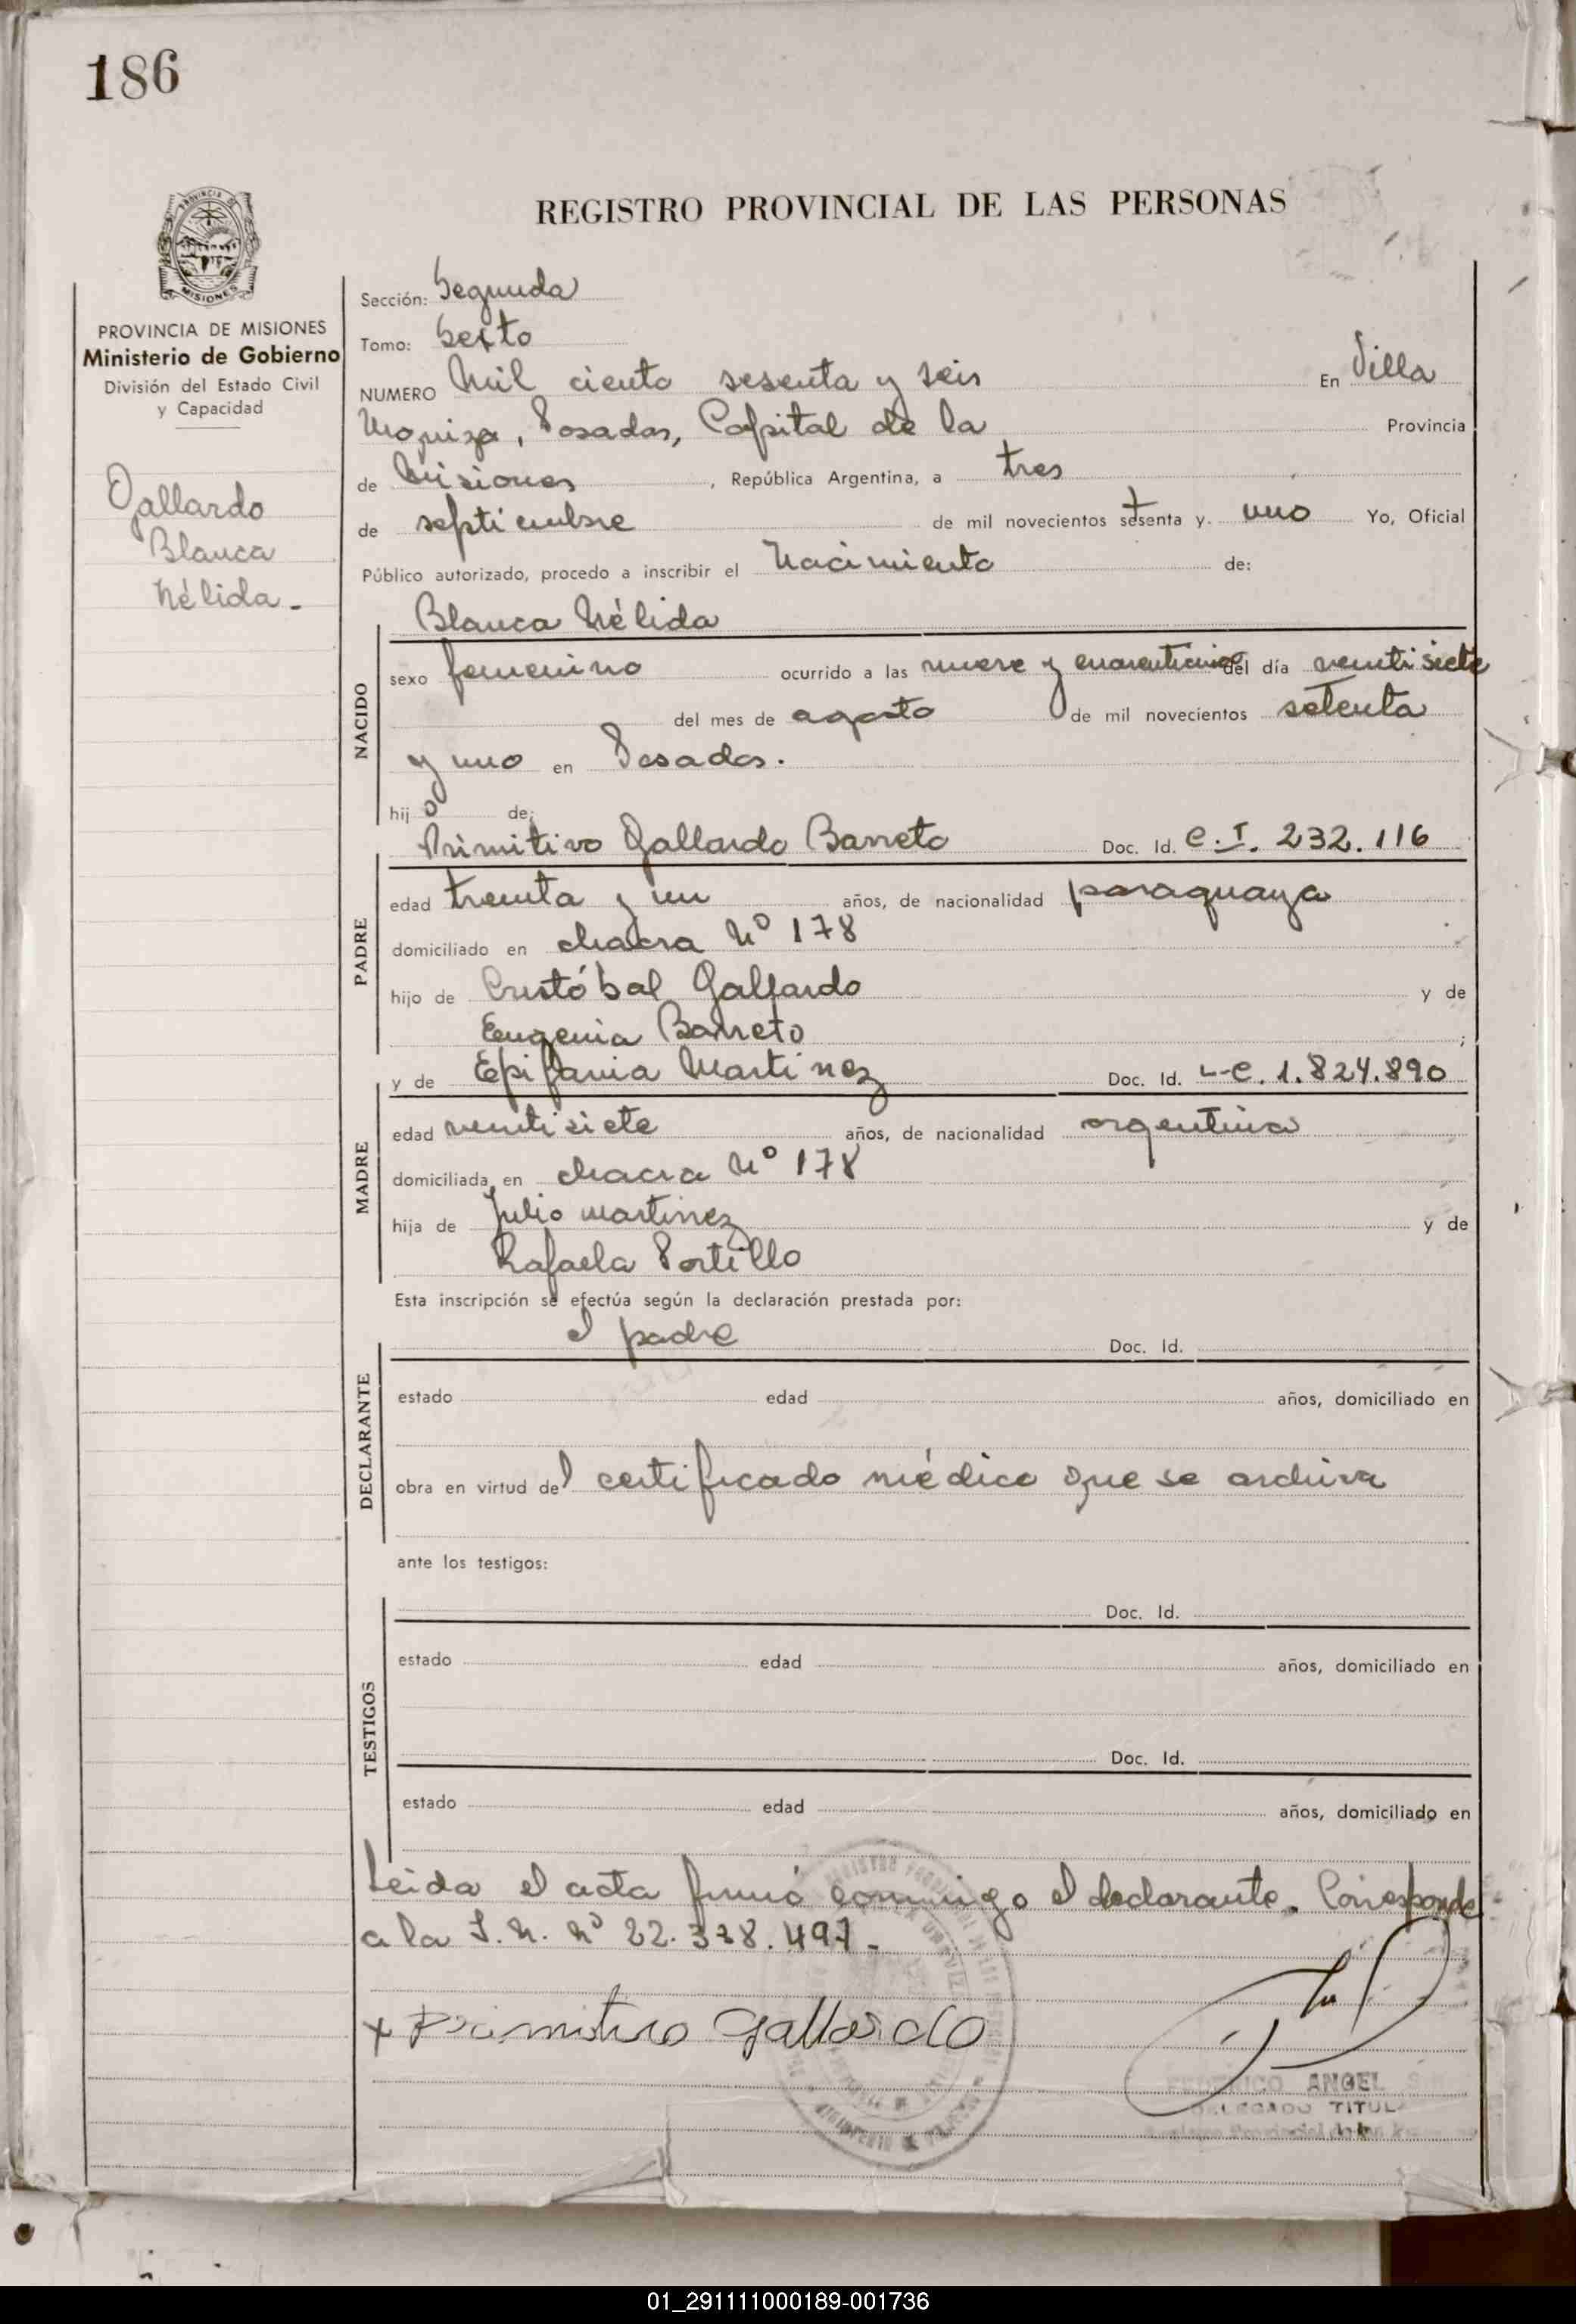 186
PROVINCIA DE MISIONES
Ministerio de Gobierno
División del Estado Civil
y Capacidad
Gallardo
Blanca
Nélida -
REGISTRO PROVINCIAL DE LAS PERSONAS
Sección: Segunda
Tomo: Sexto
NUMERO Mil ciento sesenta y seis En Villa
Urquiza, Posadas, Capital de la Provincia
de Misiones, República Argentina, a tres
de septiembre de mil novecientos setenta y uno Yo, Oficial
Público autorizado, procedo a inscribir el Nacimiento de:
Blanca Nélida
NACIDO
sexo femenino ocurrido a las nueve y del día veintisiete
del mes de agosto de mil novecientos setenta
y uno en Posadas.
hija de:
Primitivo Gallardo Barreto Doc. Id. C.I. 232.116
PADRE
edad treinta y un años, de nacionalidad paraguaya
domiciliado en chacra Nº 178
hijo de Cristóbal Gallardo y de
Eugenia Barreto ;
y de Epifania Martinez Doc. Id. L-C. 1.824.890
MADRE
edad veintisiete años, de nacionalidad argentina
domiciliada en chacra Nº 178
hija de Julio Martinez y de
Rafaela Portillo
Esta inscripción se efectúa según la declaración prestada por:
el padre Doc. Id.
DECLARANTE
estado edad años, domiciliado en
obra en virtud del certificado médico que se archiva
ante los testigos:
Doc. Id.
TESTIGOS
estado edad años, domiciliado en
Doc. Id.
estado edad años, domiciliado en
Leida el acta firmó conmigo el declarante. Corresponde
a la I. N. Nº 22.378.497.-
x Primitivo Gallardo
FEDERICO ANGEL
DELEGADO TITUL
01_291111000189-001736